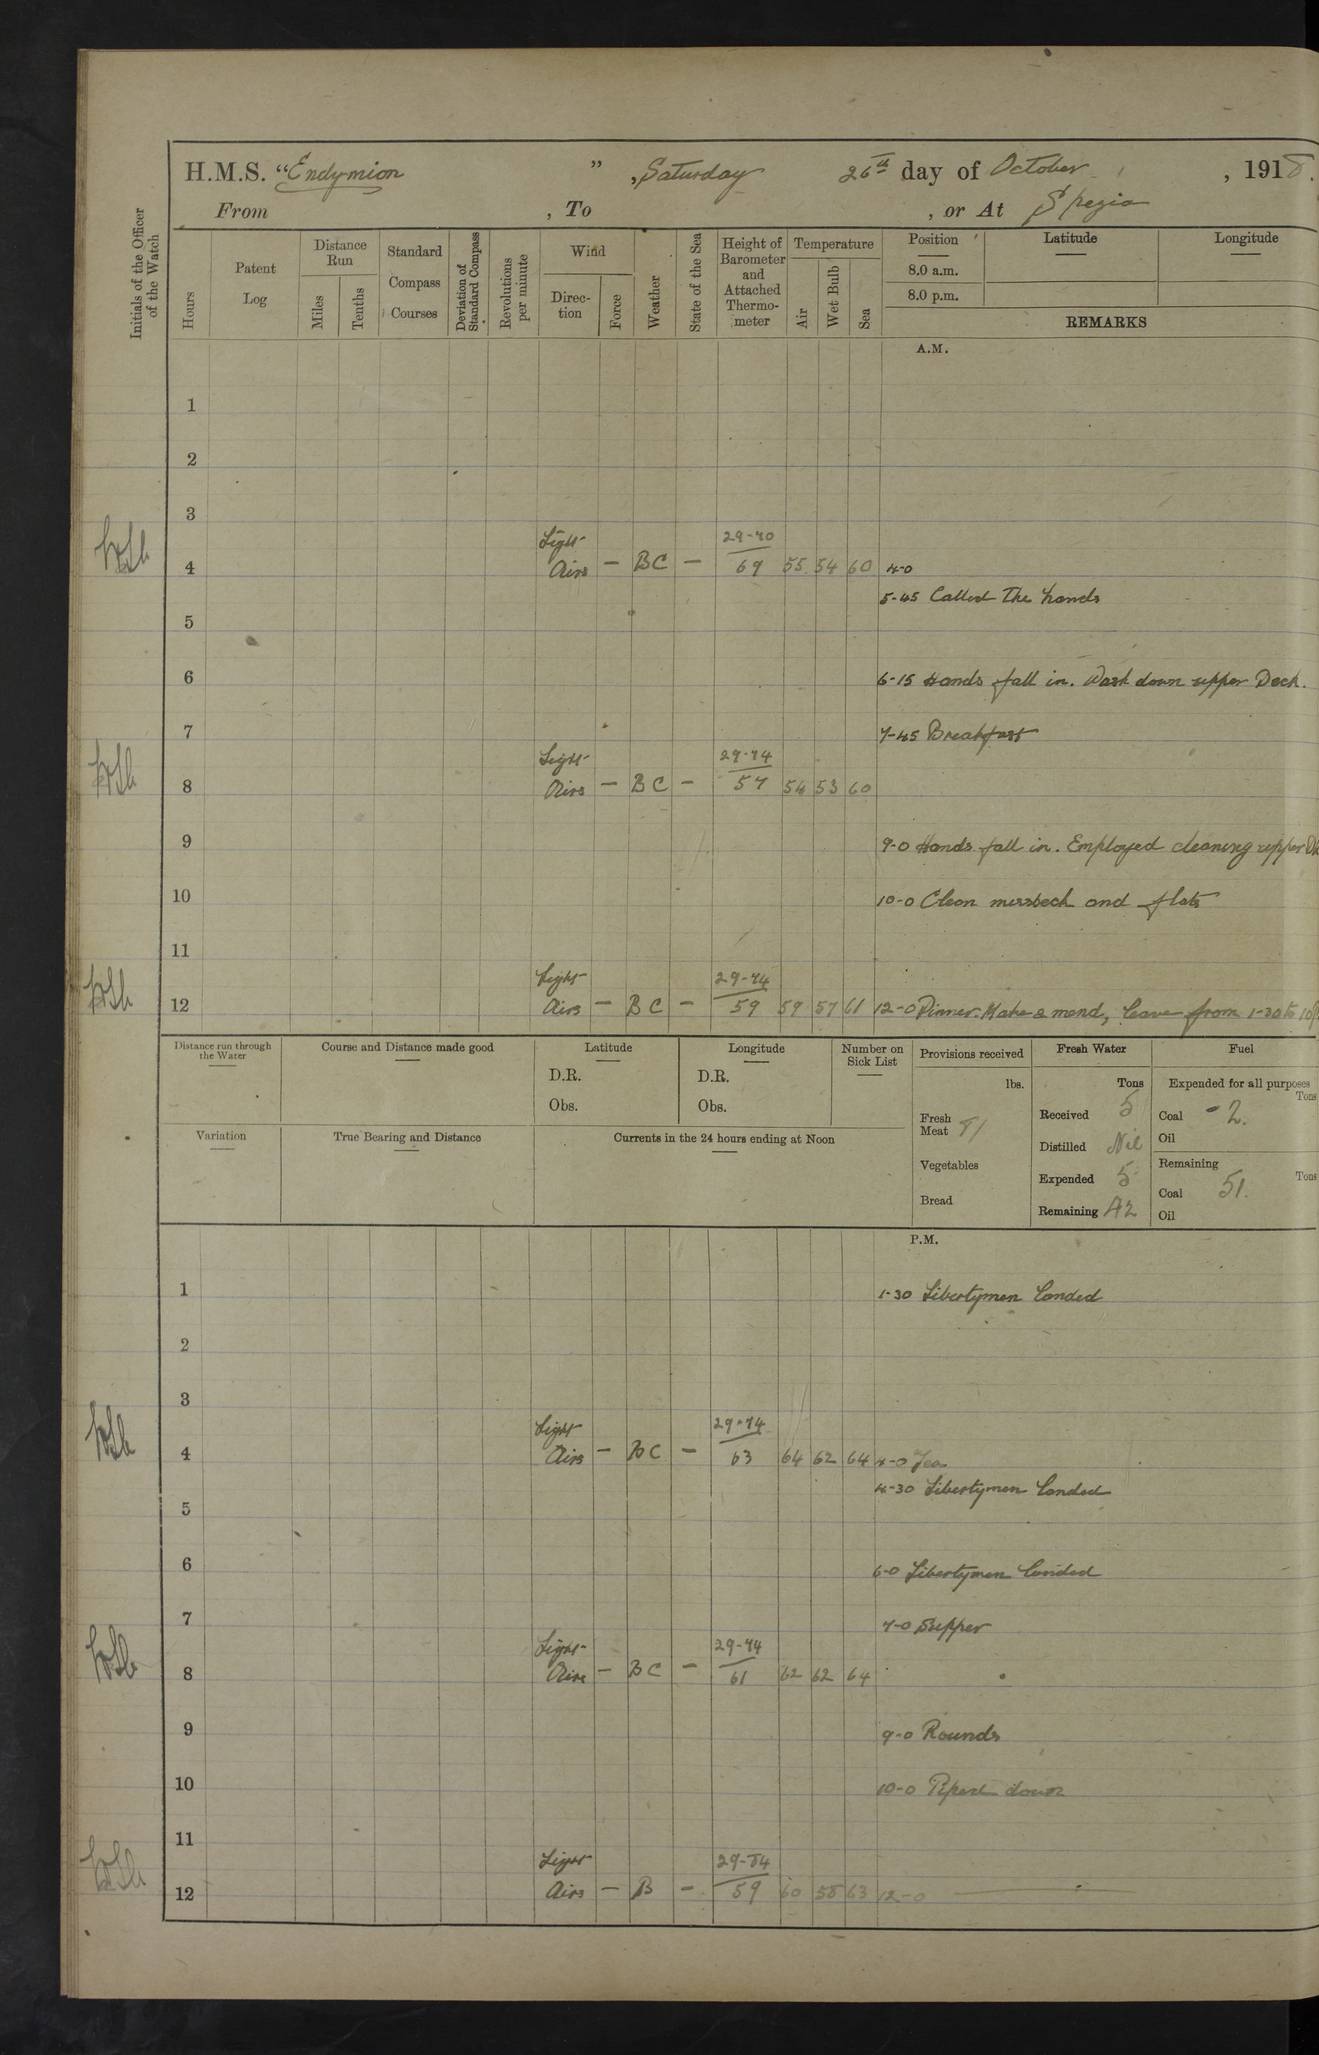 H.M.S. "Endymion", Saturday 26th day of October, 1918.
From , To , or At Spezia
Initials of the Officer of the Watch
Hours
Patent Log
Distance Run
Miles
Tenths
Standard Compass Courses
Deviation of Standard Compass
Revolutions per minute
Wind
Direc-tion
Force
Weather
State of the Sea
Height of Barometer and Attached Thermo-meter
Temperature
Air
Wet Bulb
Sea
Position
Latitude
Longitude
8.0 a.m.
8.0 p.m.
REMARKS
A.M.
1
2
3
4 Light Airs — BC — 29-70 69 55 54 60 4-0
5-45 Called the hands
5
6 6-15 Hands fall in. Wash down upper Deck.
7 7-45 Breakfast
8 Light Airs — BC — 29-74 57 54 53 60
9 9-0 Hands fall in. Employed cleaning upper
10 10-0 Clean messdeck and flats
11
12 Light Airs — BC — 29-74 59 59 57 61 12-0 Dinner. Make & mend, leave from 1-30 to 10
Distance run through the Water
Course and Distance made good
Latitude
D.R.
Obs.
Longitude
D.R.
Obs.
Number on Sick List
Provisions received
lbs.
Fresh Meat 71
Vegetables
Bread
Fresh Water
Tons
Received 5
Distilled Nil
Expended 5
Remaining 42
Fuel
Expended for all purposes
Tons
Coal 2.
Oil
Remaining
Tons
Coal 51.
Oil
Variation
True Bearing and Distance
Currents in the 24 hours ending at Noon
P.M.
1 1-30 Libertymen landed
2
3
4 Light Airs — BC — 29-74 63 64 62 64 4-0 Tea
4-30 Libertymen landed
5
6 6-0 Libertymen landed
7 7-0 Supper
8 Light Airs — BC — 29-74 61 62 62 64
9 9-0 Rounds
10 10-0 Piped down
11
12 Light Airs — B — 29-84 59 60 58 63 12-0 —